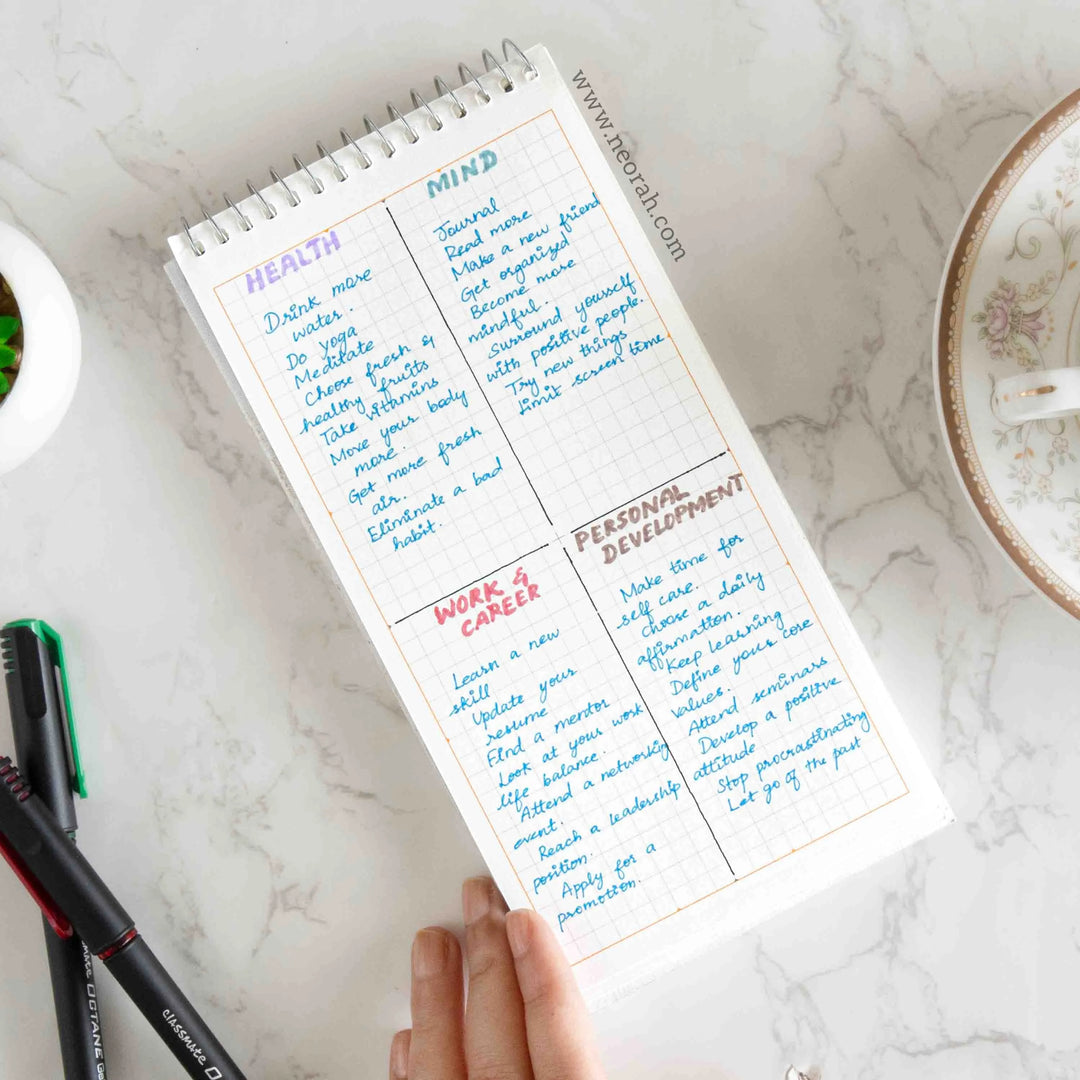 www.neorah.com
HEALTH
Drink more
water.
Do yoga
Meditate
Choose fresh &
healthy fruits
Take vitamins
Move your body
more.
Get more fresh
air.
Eliminate a bad
habit.
MIND
Journal
Read more
Make a new friend
Get organized
Become more
mindful.
Surround yourself
with positive people.
Try new things
Limit screen time
WORK &
CAREER
Learn a new
skill
Update your
resume
Find a mentor
Look at your work
life balance.
Attend a networking
event.
Reach a leadership
position.
Apply for a
promotion.
PERSONAL
DEVELOPMENT
Make time for
self care.
Choose a daily
affirmation.
Keep learning
Define your core
values.
Attend seminars
Develop a positive
attitude
Stop procrastinating
Let go of the past
classmate OCTANE
classmate